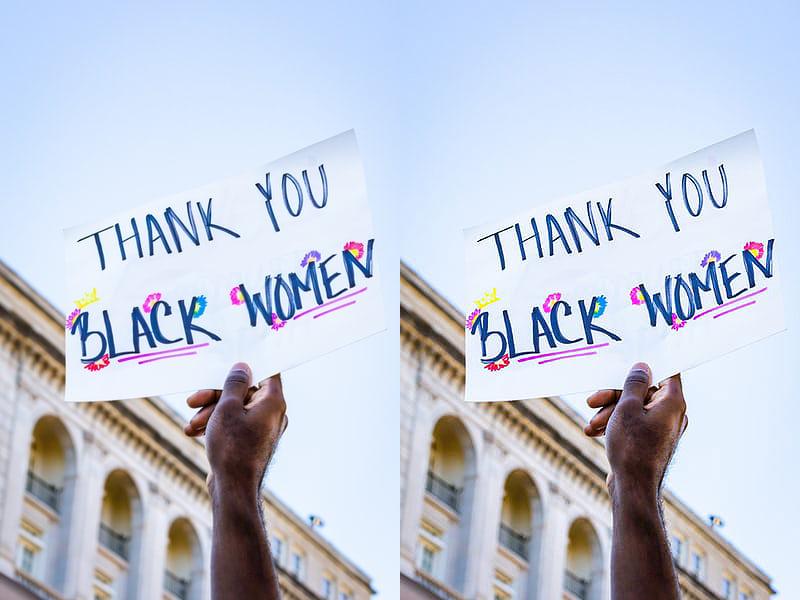 THANK YOU
BLACK WOMEN
THANK YOU
BLACK WOMEN